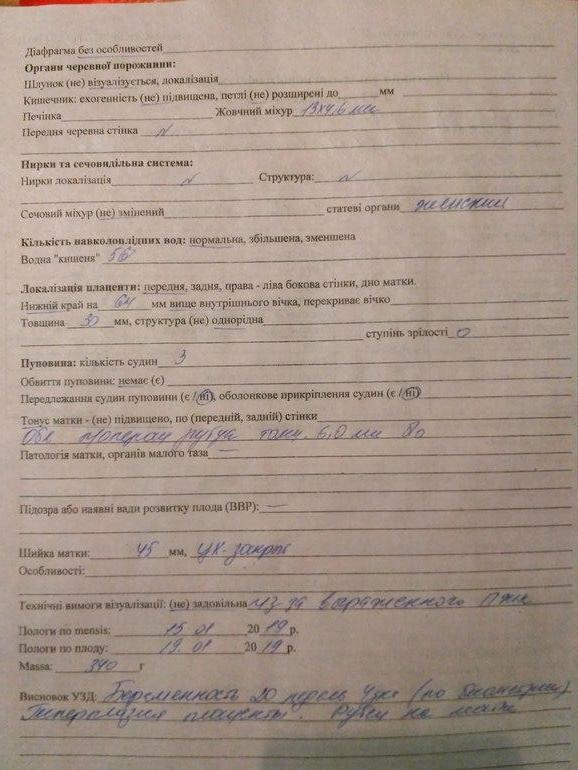 Діафрагма без особливостей
Органи черевної порожнини:
Шлунок (не) візуалізується, локалізація
Кишечник: ехогенність (не) підвищена, петлі (не) розширені до мм
Печінка Жовчний міхур 13х4,6 мм
Передня черевна стінка N
Нирки та сечовидільна система:
Нирки локалізація N Структура: N
Сечовий міхур (не) змінений статеві органи женский
Кількість навколоплідних вод: нормальна, збільшена, зменшена
Водна "кишеня" 56
Локалізація плаценти: передня, задня, права - ліва бокова стінки, дно матки.
Нижній край на 64 мм вище внутрішнього вічка, перекриває вічко
Товщина 30 мм, структура (не) однорідна
ступінь зрілості 0
Пуповина: кількість судин 3
Обвиття пуповини: немає (є)
Передлежання судин пуповини (є / ні), оболонкове прикріплення судин (є / ні)
Тонус матки - (не) підвищено, по (передній, задній) стінки
рубца 6,0 мм
Патологія матки, органів малого таза —
Підозра або наявні вади розвитку плода (ВВР): —
Шийка матки: 45 мм, закрыт
Особливості:
Технічні вимоги візуалізації: (не) задовільна из за выраженного ПЖК
Пологи по mensis: 15 01 20 19 р.
Пологи по плоду: 19. 01 20 19 р.
Massa: 340 г
Висновок УЗД: Беременность 20 недель (по биометрии)
Гиперплазия плаценты. Рубец на матке